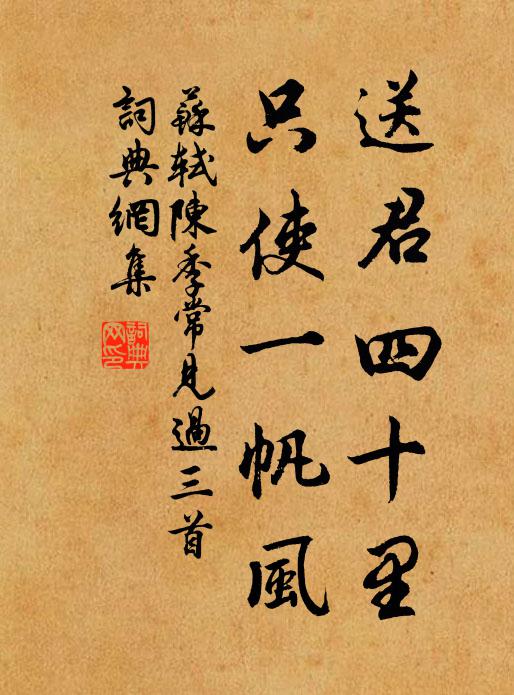 送君四十里
只使一帆風
蘇軾陳季常見過三首
詞典網集
詞典
网印